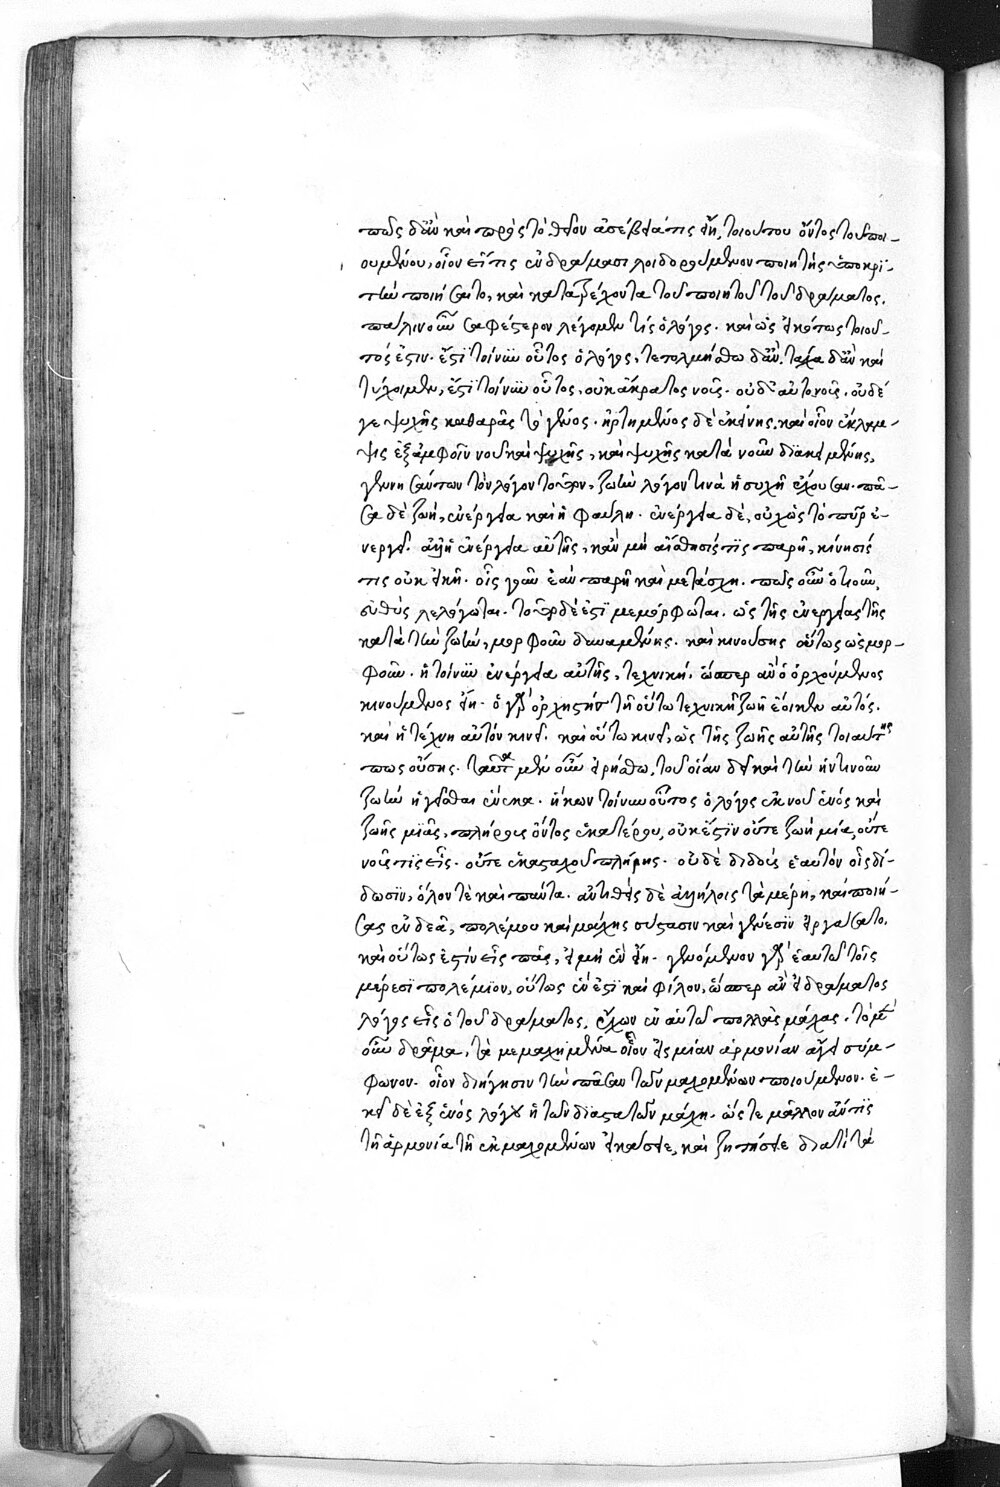 πῶς δ' ἂν καὶ πρὸς τὸ θεῖον ἀσέβειά τις εἴη, τοιούτου ὄντος τοῦ ποι-
ουμένου, οἷον εἴ τις ἐν δράμασι λοιδορούμενον ποιητὴς ὑποκρι-
τὴν ποιήσαιτο, καὶ κατατρέχοντα τοῦ ποιητοῦ τοῦ δράματος.
πάλιν οὖν σαφέστερον λέγομεν τίς ὁ λόγος. καὶ ὡς εἰκότως τοιοῦ-
τός ἐστιν. ἔστι τοίνυν οὗτος ὁ λόγος, τετολμήσθω δ' ἄν. τάχα δ' ἂν καὶ
τύχοιμεν, ἔστι τοίνυν οὗτος, οὐκ ἄκρατος νοῦς. οὐδ' αὐτονοῦς. οὐδέ
γε ψυχῆς καθαρᾶς τὸ γένος. ἠρτημένος δὲ ἐκείνης. καὶ οἷον ἔκλαμ-
ψις ἐξ ἀμφοῖν νοῦ καὶ ψυχῆς, καὶ ψυχῆς κατὰ νοῦν διακειμένης,
γεννησάντων τὸν λόγον τοῦτον, ζωὴν λόγον τινὰ ἡσυχῆ ἔχουσαν. πᾶ-
σα δὲ ζωή, ἐνέργεια καὶ ἡ φαύλη. ἐνέργεια δὲ, οὐχ ὡς τὸ πῦρ ἐ-
νεργεῖ. ἀλλ' ἡ ἐνέργεια αὐτῆς, κἂν μὴ αἴσθησίς τις παρῇ, κίνησίς
τις οὐκ εἰκῆ. οἷς γοῦν ἐὰν παρῇ καὶ μετάσχῃ. πως οὖν ὁτιοῦν,
εὐθὺς λελόγωται. τοῦτο δέ ἐστι μεμόρφωται. ὡς τῆς ἐνεργείας τῆς
κατὰ τὴν ζωὴν, μορφοῦν δυναμένης. καὶ κινούσης οὕτως ὡς μορ-
φοῦν. ἡ τοίνυν ἐνέργεια αὐτῆς, τεχνική. ὥσπερ ἂν ὁ ὀρχούμενος
κινούμενος εἴη. ὁ γὰρ ὀρχηστὴς τῇ οὕτω τεχνικῇ ζωῇ ἔοικεν αὐτός.
καὶ ἡ τέχνη αὐτὸν κινεῖ. καὶ οὕτω κινεῖ, ὡς τῆς ζωῆς αὐτῆς τοιαύτης
πως οὔσης. ταῦτα μὲν οὖν εἰρήσθω, τοῦ οἵαν δεῖ καὶ τὴν ἡντινοῦν
ζωὴν ἡγεῖσθαι ἕνεκα. ἥκων τοίνυν οὗτος ὁ λόγος ἐκ νοῦ ἑνὸς καὶ
ζωῆς μιᾶς, πλήρους ὄντος ἑκατέρου, οὐκ ἔστιν οὔτε ζωὴ μία, οὔτε
νοῦς τις εἷς. οὔτε ἑκασταχοῦ πλήρης. οὐδὲ διδοὺς ἑαυτὸν οἷς δί-
δωσιν, ὅλον τε καὶ πάντα. ἀντιθεὶς δὲ ἀλλήλοις τὰ μέρη, καὶ ποιή-
σας ἐνδεᾶ, πολέμου καὶ μάχης σύστασιν καὶ γένεσιν εἰργάσατο.
καὶ οὕτως ἐστὶν εἷς πᾶς, εἰ μὴ ἓν εἴη. γενόμενον γὰρ ἑαυτῷ τοῖς
μέρεσι πολέμιον, οὕτως ἕν ἐστι καὶ φίλον, ὥσπερ ἂν εἰ δράματος
λόγος εἷς ὁ τοῦ δράματος, ἔχων ἐν αὑτῷ πολλὰς μάχας. τὸ μὲν
οὖν δρᾶμα, τὰ μεμαχημένα οἷον εἰς μίαν ἁρμονίαν ἄγει σύμ-
φωνον. οἷον διήγησιν τὴν πᾶσαν τῶν μαχομένων ποιούμενον. ἐ-
κεῖ δὲ ἐξ ἑνὸς λόγου ἡ τῶν διαστατῶν μάχη. ὥστε μᾶλλον ἄν τις
τῇ ἁρμονίᾳ τῇ ἐκ μαχομένων εἰκάσειε, καὶ ζητήσειε διὰ τί τὰ